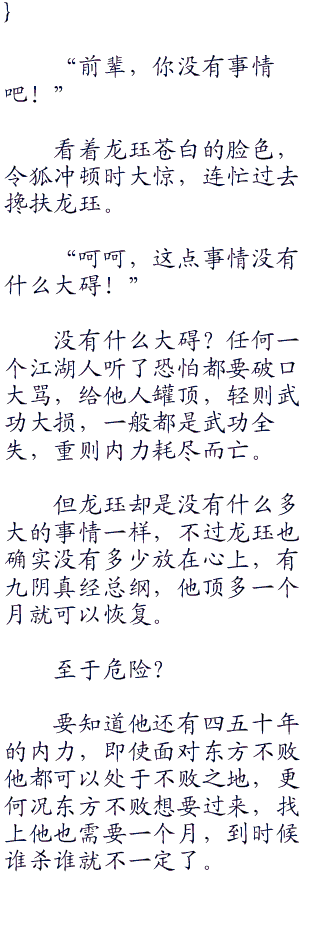 }
“前辈，你没有事情
吧！”
看着龙珏苍白的脸色，
令狐冲顿时大惊，连忙过去
搀扶龙珏。
“呵呵，这点事情没有
什么大碍！”
没有什么大碍？任何一
个江湖人听了恐怕都要破口
大骂，给他人罐顶，轻则武
功大损，一般都是武功全
失，重则内力耗尽而亡。
但龙珏却是没有什么多
大的事情一样，不过龙珏也
确实没有多少放在心上，有
九阴真经总纲，他顶多一个
月就可以恢复。
至于危险？
要知道他还有四五十年
的内力，即使面对东方不败
他都可以处于不败之地，更
何况东方不败想要过来，找
上他也需要一个月，到时候
谁杀谁就不一定了。